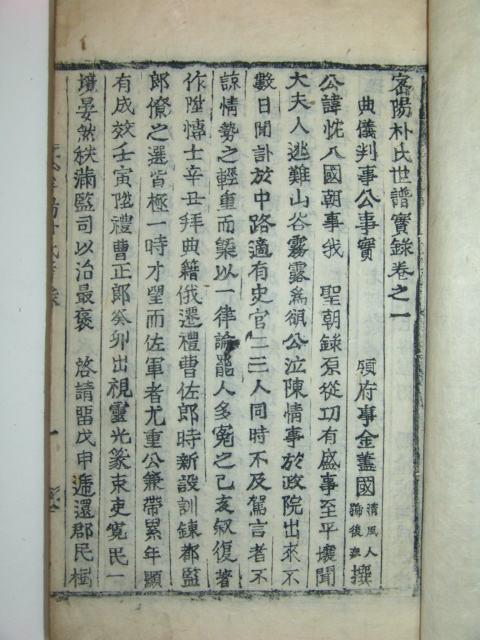 密陽朴氏世譜實錄卷之一
典儀判事公事實
領府事金藎國 淸風人 號後瘳 撰
公諱忱入國朝事我 聖朝錄原從功有盛事至平壤聞
大夫人逃難山谷霧露爲祟公泣陳情事於政院出來不
數日聞訃於中路適有史官二三人同時不及駕言者不
諒情勢之輕重而槩以一律論罷人多寃之己亥敍復著
作陞博士辛丑拜典籍俄遷禮曹佐郞時新設訓鍊都監
郞僚之選皆極一時才望而佐軍者尤重公兼帶累年顯
有成效壬寅陞禮曹正郞癸卯出視靈光篆束吏寬民一
境晏然秩滿監司以治最褒 啓請留戊申遞還郡民樹
一